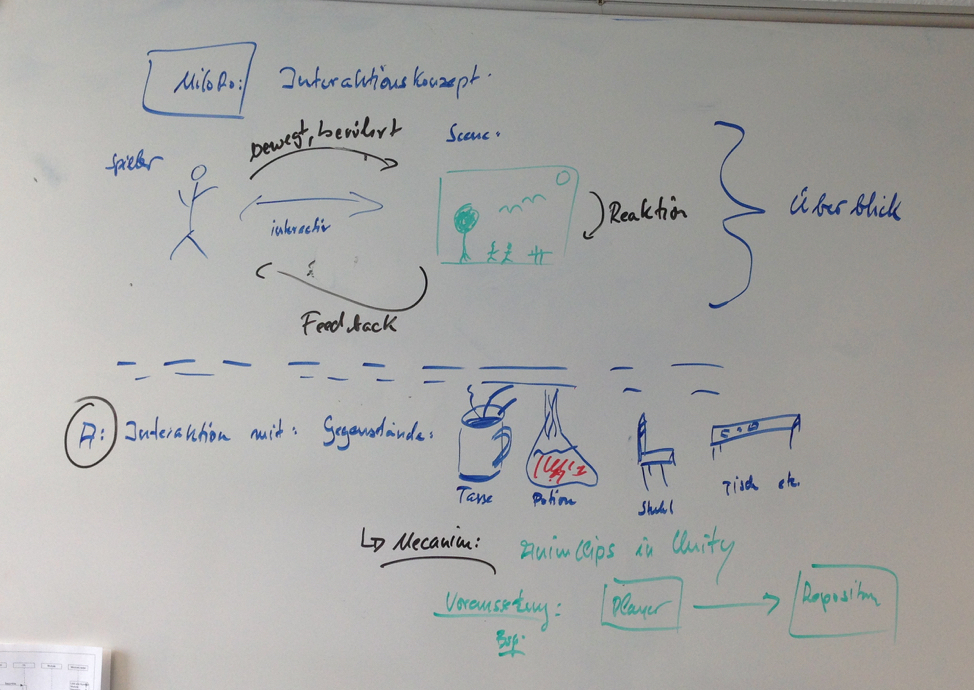 MiLoRo: Interaktionskonzept.
bewegt, berührt
Scene:
Spieler
interactiv
Reaktion
Überblick
Feedback
A: Interaktion mit: Gegenstände:
Tasse
Potion
Stuhl
Tisch etc.
↳ Mecanim: AnimClips in Unity
Voraussetzung: Player → Repository
Bsp.